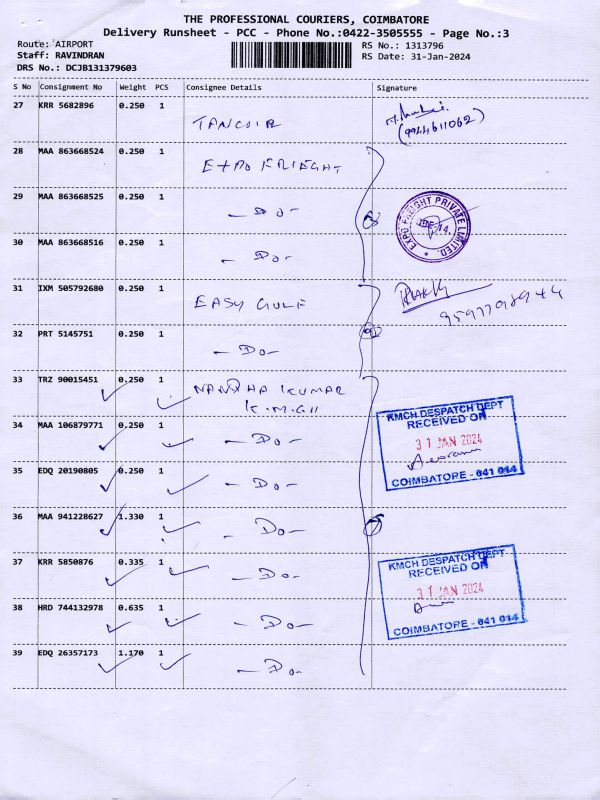 THE PROFESSIONAL COURIERS, COIMBATORE
Delivery Runsheet - PCC - Phone No.:0422-3505555 - Page No.:3
Route: AIRPORT
RS No.: 1313796
Staff: RAVINDRAN
RS Date: 31-Jan-2024
DRS No.: DCJB131379603
S No Consignment No Weight PCS Consignee Details Signature
27 KRR 5682896 0.250 1 TANCOIR
(9944611062)
28 MAA 863668524 0.250 1 EXPO FRIEGHT
29 MAA 863668525 0.250 1 - Do -
EXPO FREIGHT PRIVATE LIMITED.
30 MAA 863668516 0.250 1 - Do -
31 IXM 505792680 0.250 1 EASY GULF
32 PRT 5145751 0.250 1 - Do -
33 TRZ 90015451 0.250 1 NANDHA KUMAR
K.M.CH
KMCH DESPATCH DEPT
RECEIVED ON
34 MAA 106879771 0.250 1 - Do -
31 JAN 2024
35 EDQ 20190805 0.250 1 - Do -
COIMBATORE - 641 014
36 MAA 941228627 1.330 1 - Do -
37 KRR 5850876 0.335 1 - Do -
KMCH DESPATCH DEPT
RECEIVED ON
31 JAN 2024
38 HRD 744132978 0.635 1 - Do -
COIMBATORE - 641 014
39 EDQ 26357173 1.170 1 - Do -